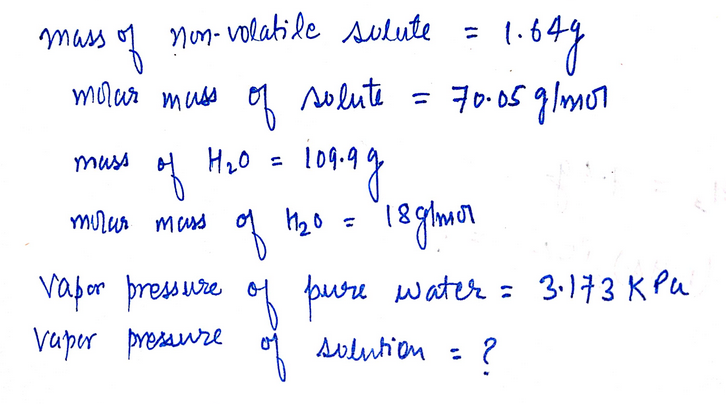 mass of non-volatile solute = 1.64g
molar mass of solute = 70.05 g/mol
mass of H₂O = 109.9g
molar mass of H₂O = 18g/mol
Vapor pressure of pure water = 3.173 KPa
Vapor pressure of solution = ?